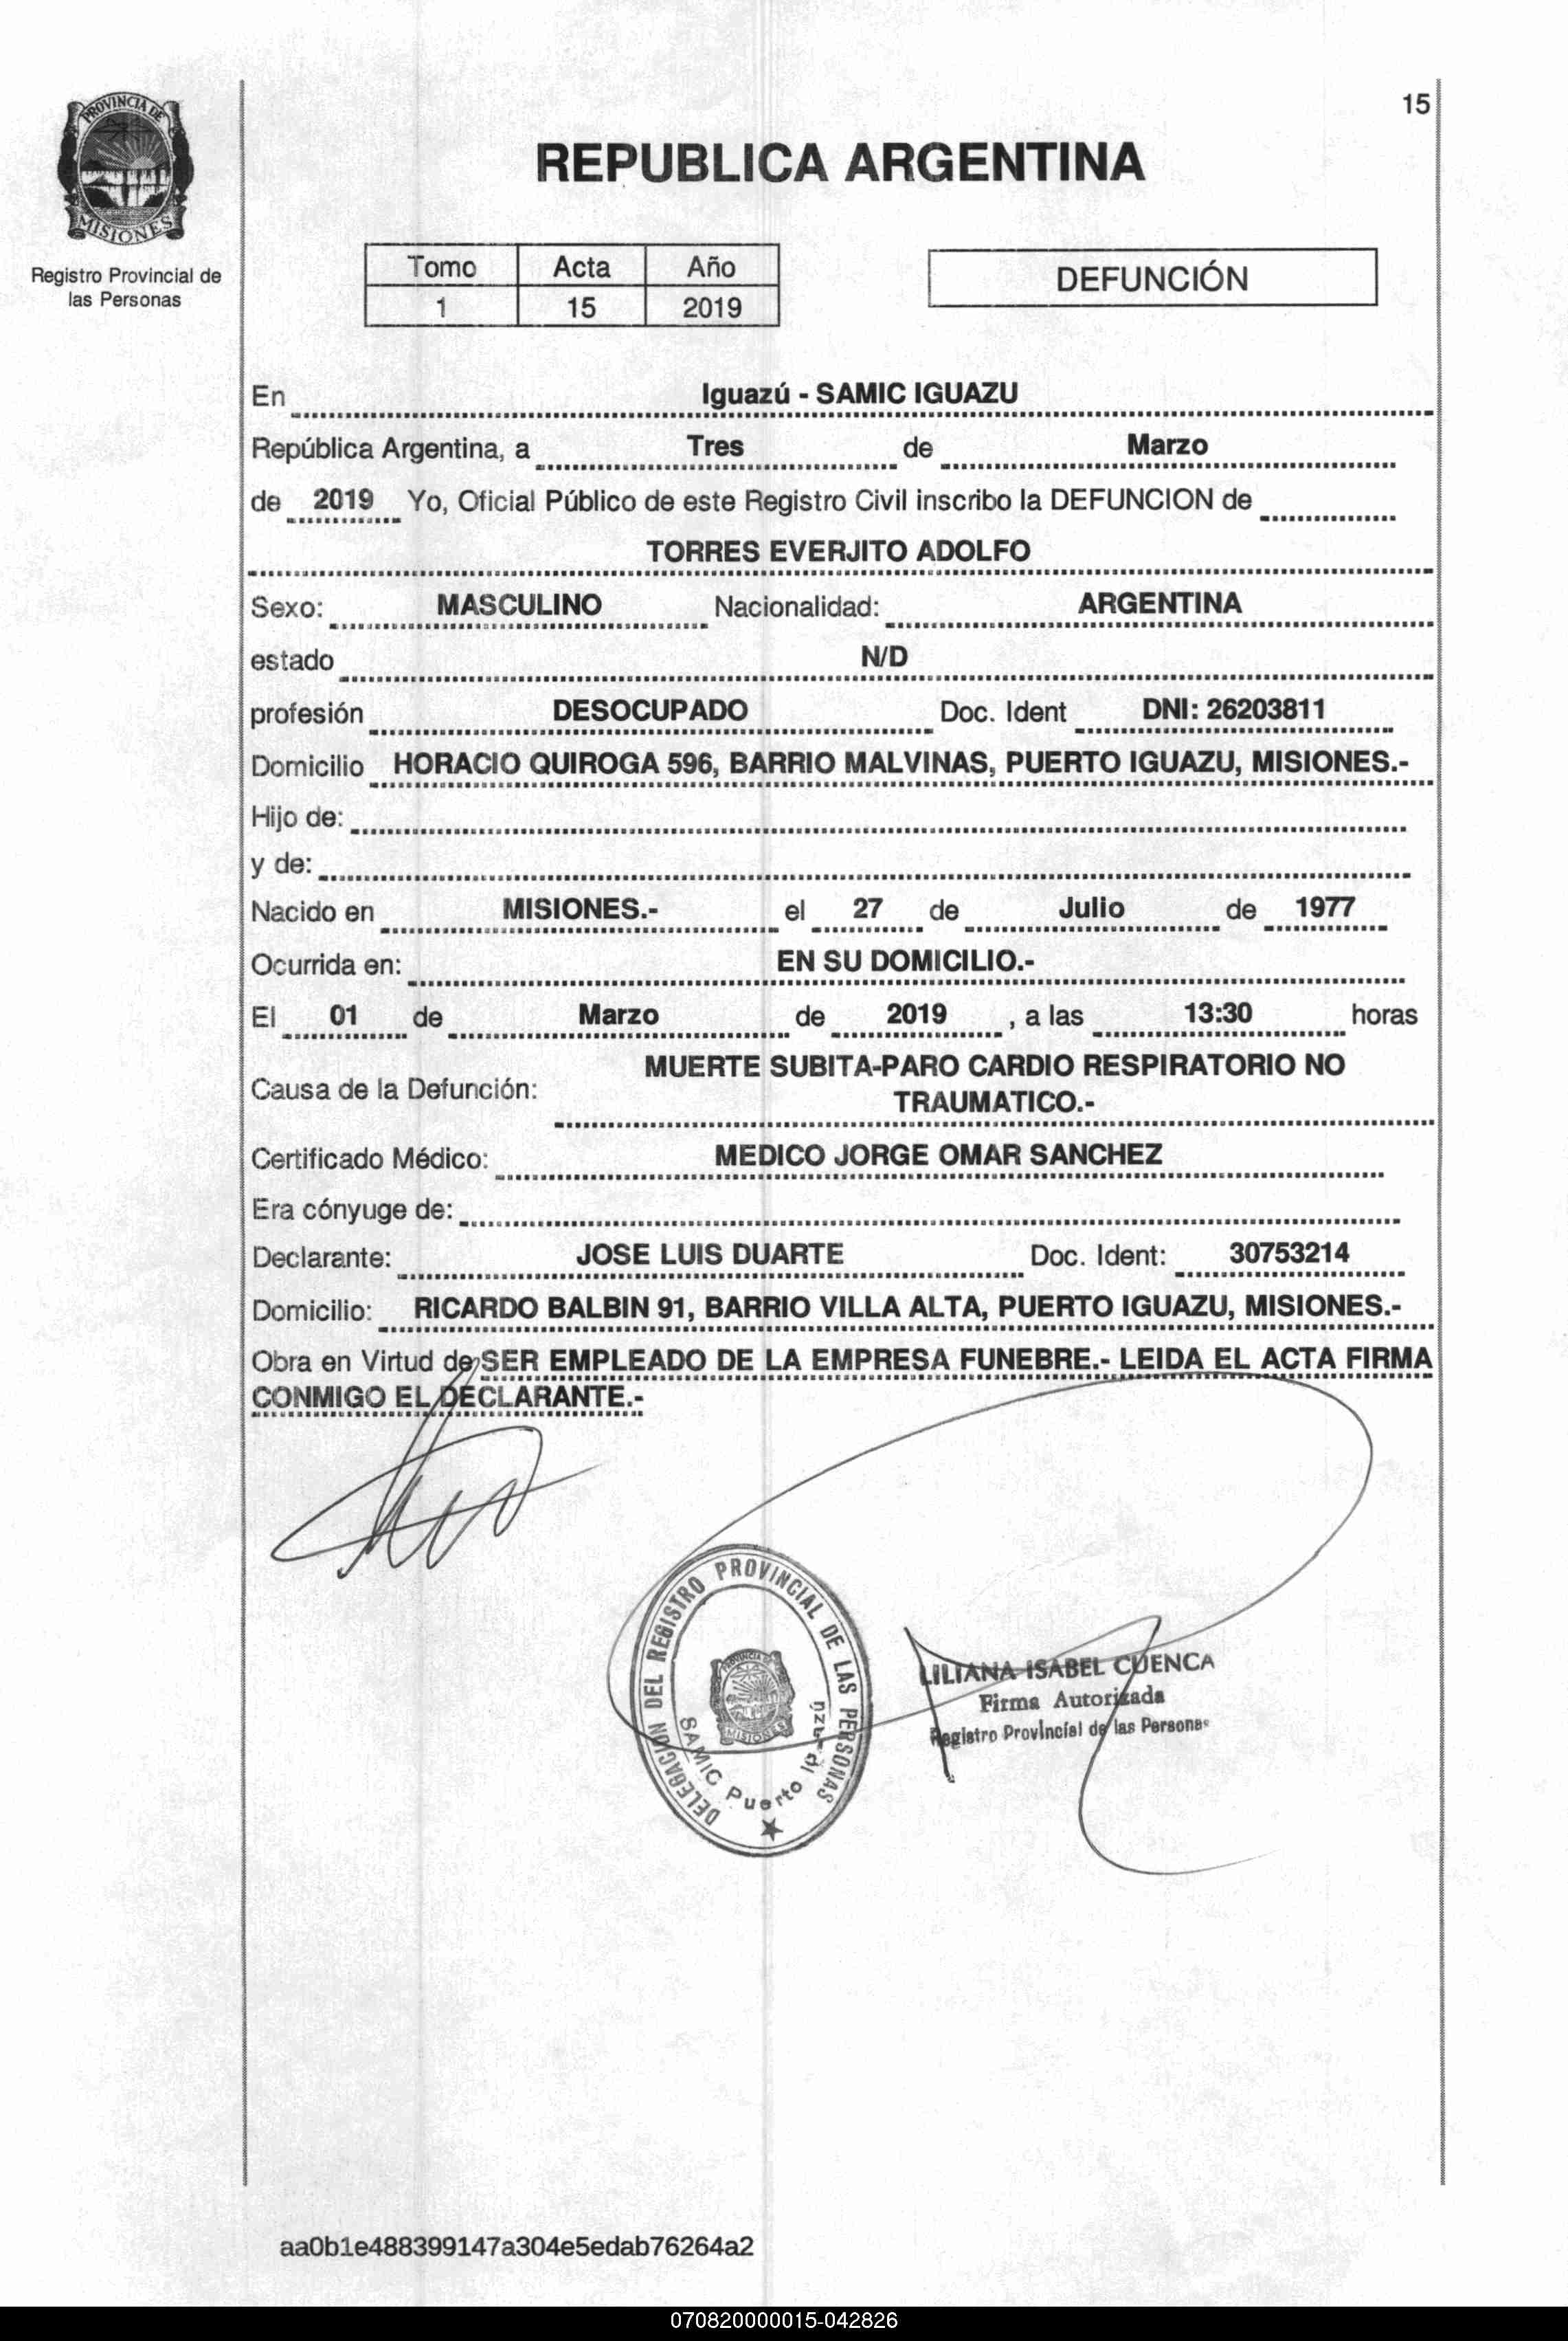 15
PROVINCIA DE
MISIONES
REPUBLICA ARGENTINA
Registro Provincial de
las Personas
Tomo Acta Año
1 15 2019
DEFUNCIÓN
En Iguazú - SAMIC IGUAZU
República Argentina, a Tres de Marzo
de 2019 Yo, Oficial Público de este Registro Civil inscribo la DEFUNCION de
TORRES EVERJITO ADOLFO
Sexo: MASCULINO Nacionalidad: ARGENTINA
estado N/D
profesión DESOCUPADO Doc. Ident DNI: 26203811
Domicilio HORACIO QUIROGA 596, BARRIO MALVINAS, PUERTO IGUAZU, MISIONES.-
Hijo de:
y de:
Nacido en MISIONES.- el 27 de Julio de 1977
Ocurrida en: EN SU DOMICILIO.-
El 01 de Marzo de 2019 , a las 13:30 horas
MUERTE SUBITA-PARO CARDIO RESPIRATORIO NO
Causa de la Defunción:
TRAUMATICO.-
Certificado Médico: MEDICO JORGE OMAR SANCHEZ
Era cónyuge de:
Declarante: JOSE LUIS DUARTE Doc. Ident: 30753214
Domicilio: RICARDO BALBIN 91, BARRIO VILLA ALTA, PUERTO IGUAZU, MISIONES.-
Obra en Virtud de SER EMPLEADO DE LA EMPRESA FUNEBRE.- LEIDA EL ACTA FIRMA
CONMIGO EL DECLARANTE.-
DELEGACION DEL REGISTRO PROVINCIAL DE LAS PERSONAS
PROVINCIA DE
MISIONES
SAMIC Puerto Iguazú
LILIANA ISABEL CUENCA
Firma Autorizada
Registro Provincial de las Personas
aa0b1e488399147a304e5edab76264a2
070820000015-042826